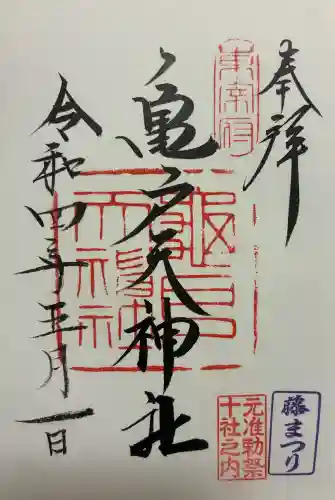 奉拝
東宰府
亀戸天神社
亀戸天神社
令和四年五月一日
元准勅祭
十社之内
藤まつり